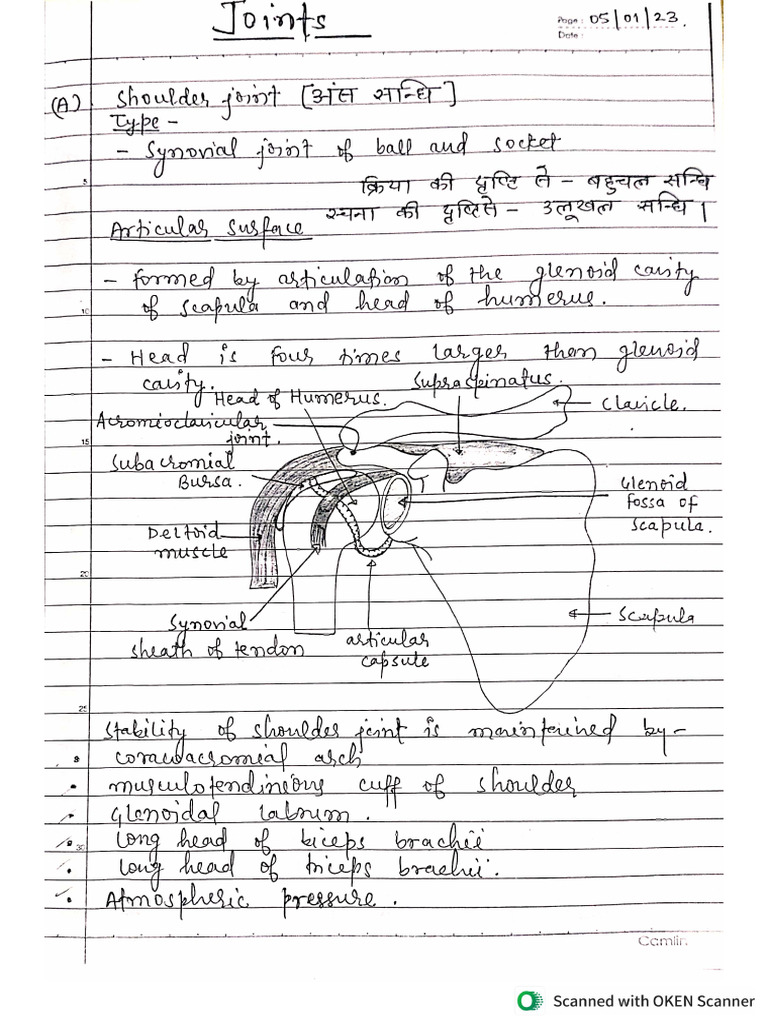 Joints
Page: 05/01/23.
Date:
(A) Shoulder joint [अंस सन्धि]
Type -
- Synovial joint of ball and socket
5
क्रिया की दृष्टि से - बहुचल सन्धि
रचना की दृष्टि से - उलूखल सन्धि।
Articular surface
- formed by articulation of the glenoid cavity
10
of scapula and head of humerus.
- Head is four times larger then glenoid
cavity.
Supraspinatus.
Head of Humerus.
Clavicle.
Acromioclavicular
15
joint.
Subacromial
Bursa.
Glenoid
fossa of
scapula.
Deltoid
muscle
20
Synovial
sheath of tendon
articular
capsule
Scapula
25
Stability of shoulder joint is maintained by-
• coracoacromial arch
• musculotendineous cuff of shoulder
• Glenoidal labrum.
30
• Long head of biceps brachii
• Long head of triceps brachii.
• Atmospheric pressure.
Camlin
Scanned with OKEN Scanner